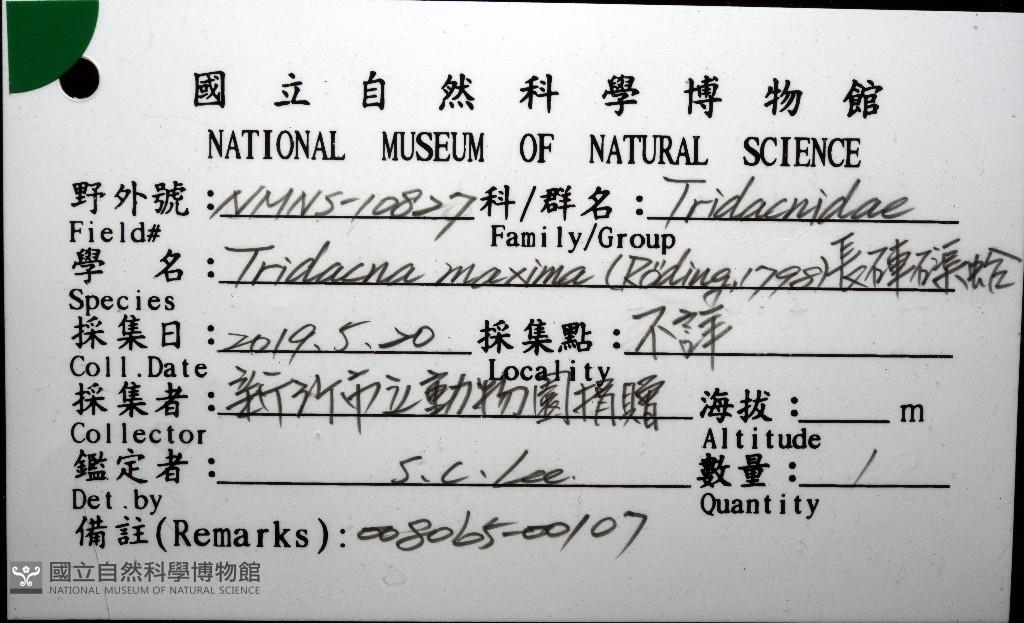 國立自然科學博物館
NATIONAL MUSEUM OF NATURAL SCIENCE
野外號：NMNS-10827 科/群名：Tridacnidae
Field# Family/Group
學 名：Tridacna maxima (Röding, 1798) 長硨磲蛤
Species
採集日：2019.5.20 採集點：不詳
Coll.Date Locality
採集者：新竹市立動物園捐贈 海拔： m
Collector Altitude
鑑定者： S.C. Lee. 數量： 1
Det.by Quantity
備註(Remarks): 008065-00107
國立自然科學博物館
NATIONAL MUSEUM OF NATURAL SCIENCE